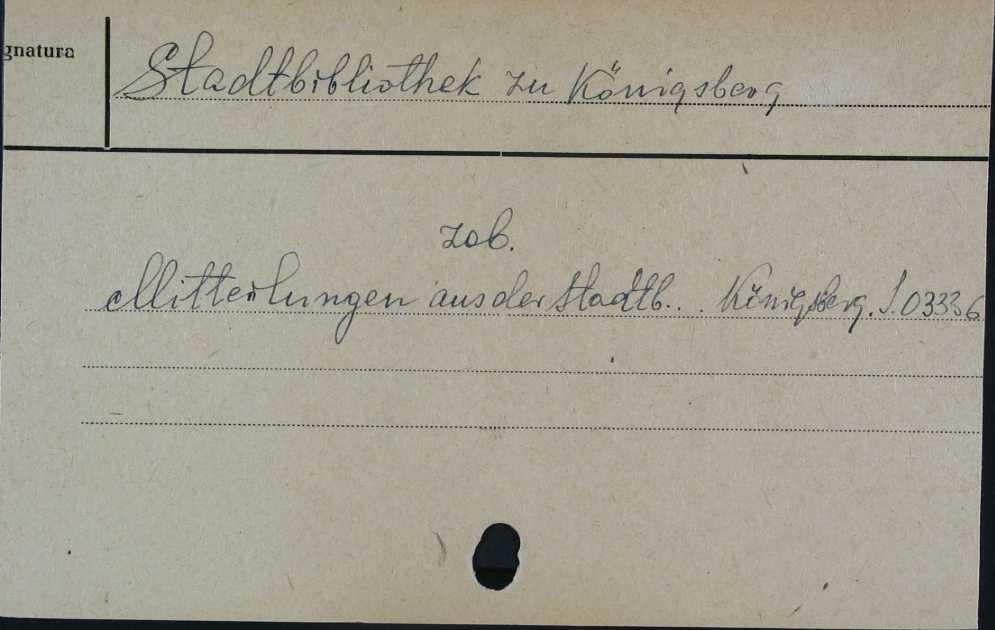 gnatura
Stadtbibliothek zu Königsberg
zob.
Mitteilungen aus der Stadtb... Königsberg. S.03336